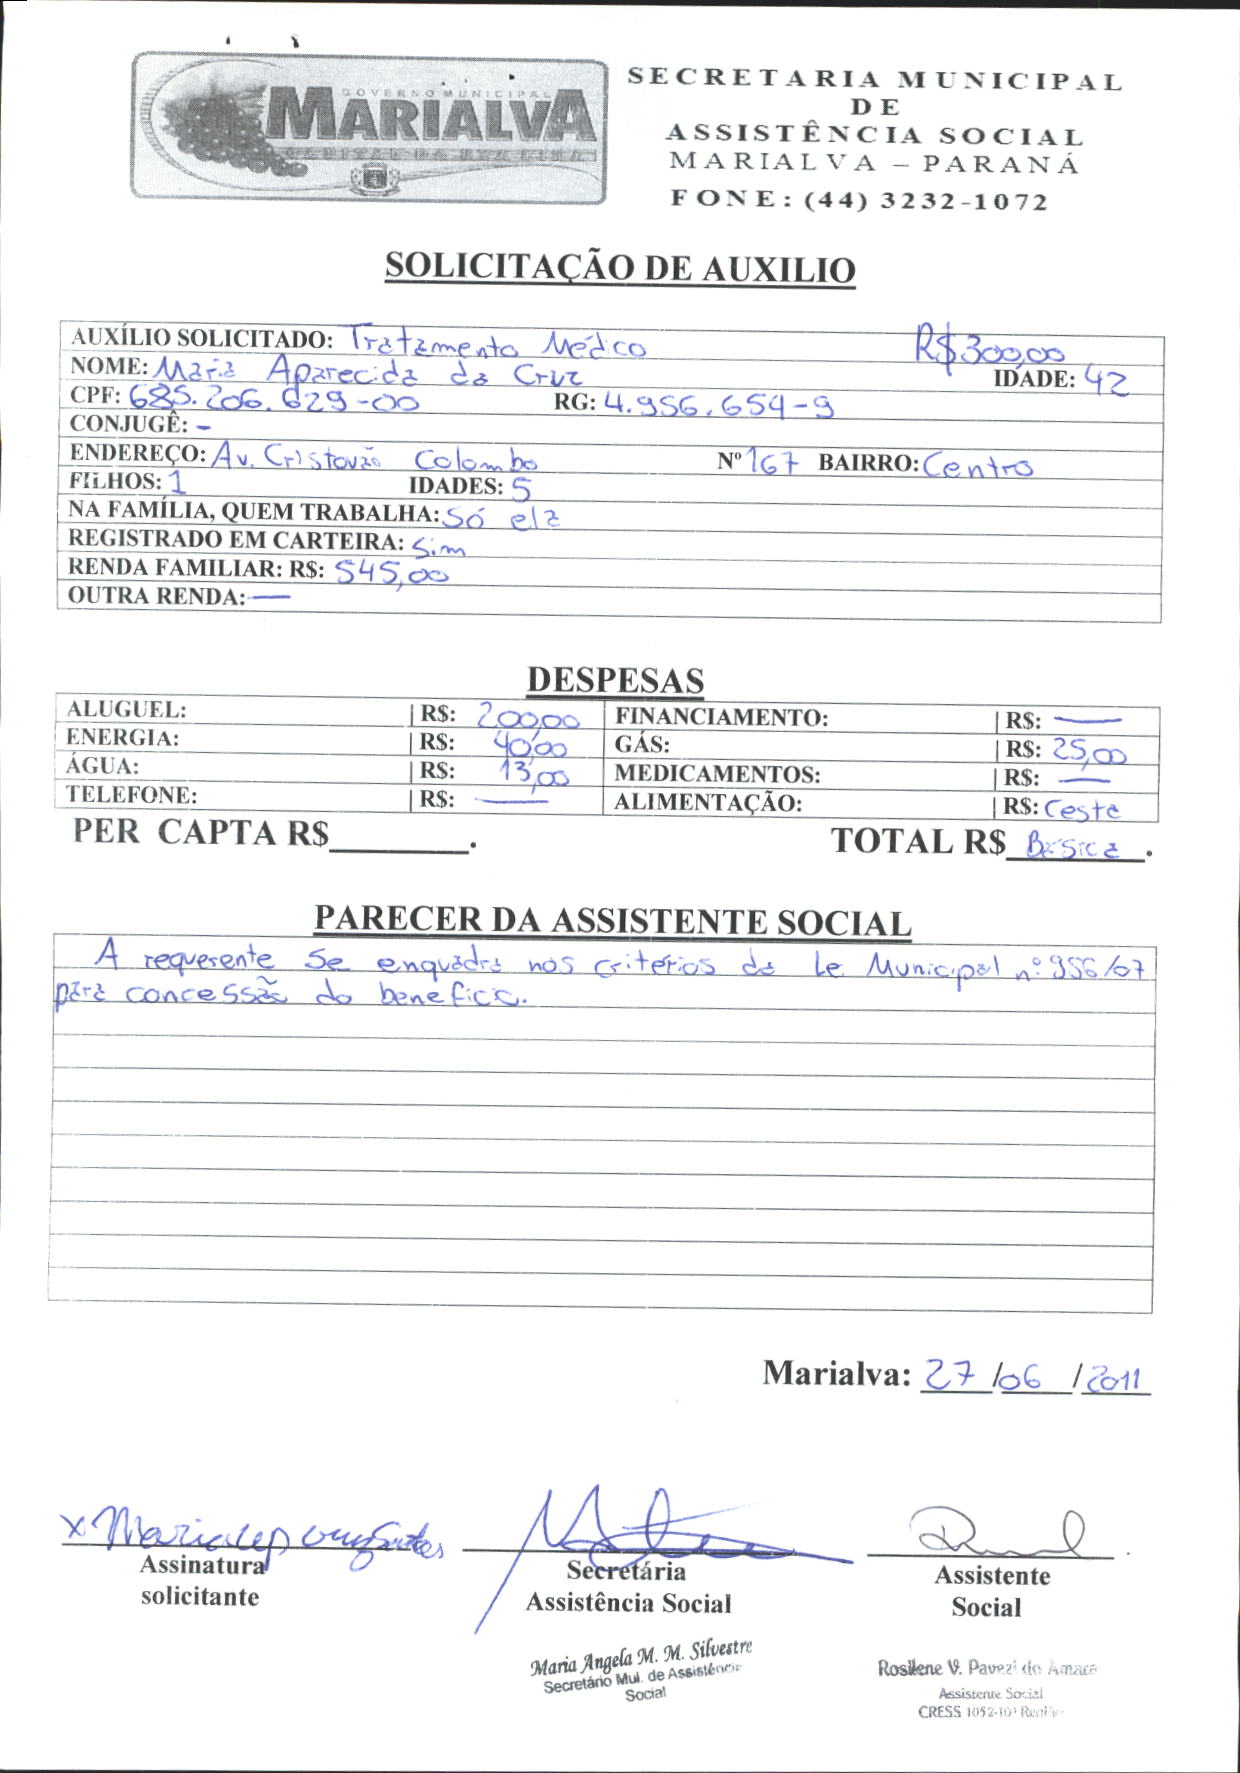 GOVERNO MUNICIPAL
MARIALVA
CAPITAL DA UVA FINA
SECRETARIA MUNICIPAL
DE
ASSISTÊNCIA SOCIAL
MARIALVA – PARANÁ
FONE: (44) 3232-1072
SOLICITAÇÃO DE AUXILIO
AUXÍLIO SOLICITADO: Tratamento Médico R$300,00
NOME: Maria Aparecida da Cruz IDADE: 42
CPF: 685.206.629-00 RG: 4.956.654-9
CONJUGÊ: -
ENDEREÇO: Av. Cristovão Colombo Nº 167 BAIRRO: Centro
FILHOS: 1 IDADES: 5
NA FAMÍLIA, QUEM TRABALHA: Só ela
REGISTRADO EM CARTEIRA: Sim
RENDA FAMILIAR: R$: 545,00
OUTRA RENDA: —
DESPESAS
ALUGUEL: | R$: 200,00 FINANCIAMENTO: | R$: —
ENERGIA: | R$: 40,00 GÁS: | R$: 25,00
ÁGUA: | R$: 13,00 MEDICAMENTOS: | R$: —
TELEFONE: | R$: — ALIMENTAÇÃO: | R$: Cesta
PER CAPTA R$________. TOTAL R$ Básica.
PARECER DA ASSISTENTE SOCIAL
A requerente se enquadra nos critérios da Lei Municipal nº 956/07
para concessão do benefício.
Marialva: 27/06/2011
x
Assinatura Secretária Assistente
solicitante Assistência Social Social
Maria Angela M. M. Silvestre
Secretário Mul. de Assistência
Social
Rosilene V. Pavezi do Amaral
Assistente Social
CRESS 1052-10ª Região